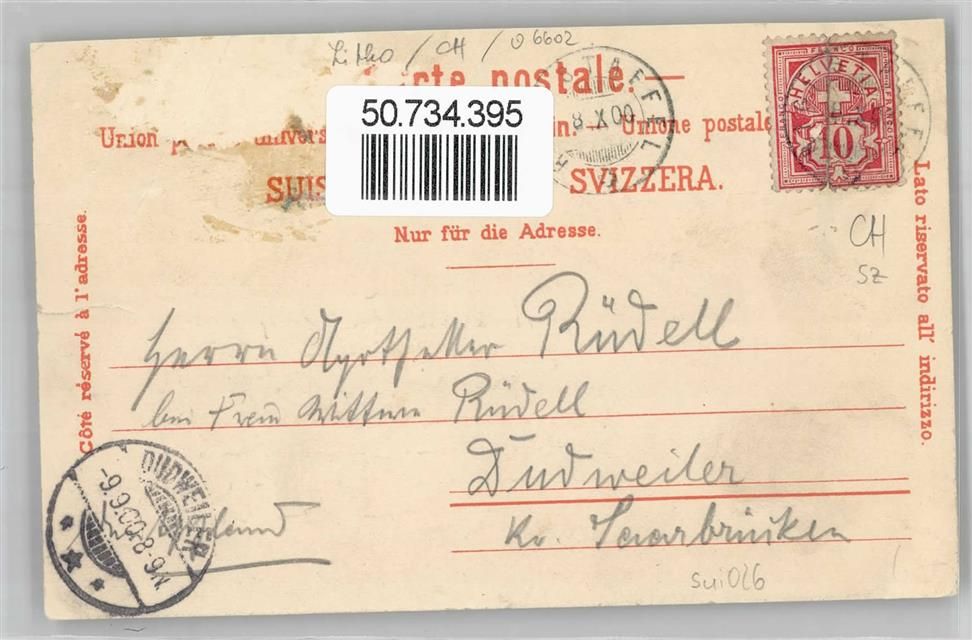 Litho / CH / o 6602
Carte postale.
50.734.395
Union postale univers in. — Unione postale
SUIS SVIZZERA.
Nur für die Adresse.
8.X.00
HELVETIA
FRANCO
10
CH
SZ
Côté réservé à l'adresse.
Lato riservato all' indirizzo.
Herrn Apotheker Rüdell
bei Frau Wittwe Rüdell
Dudweiler
Kr. Saarbrücken
DUDWEILER
sui026